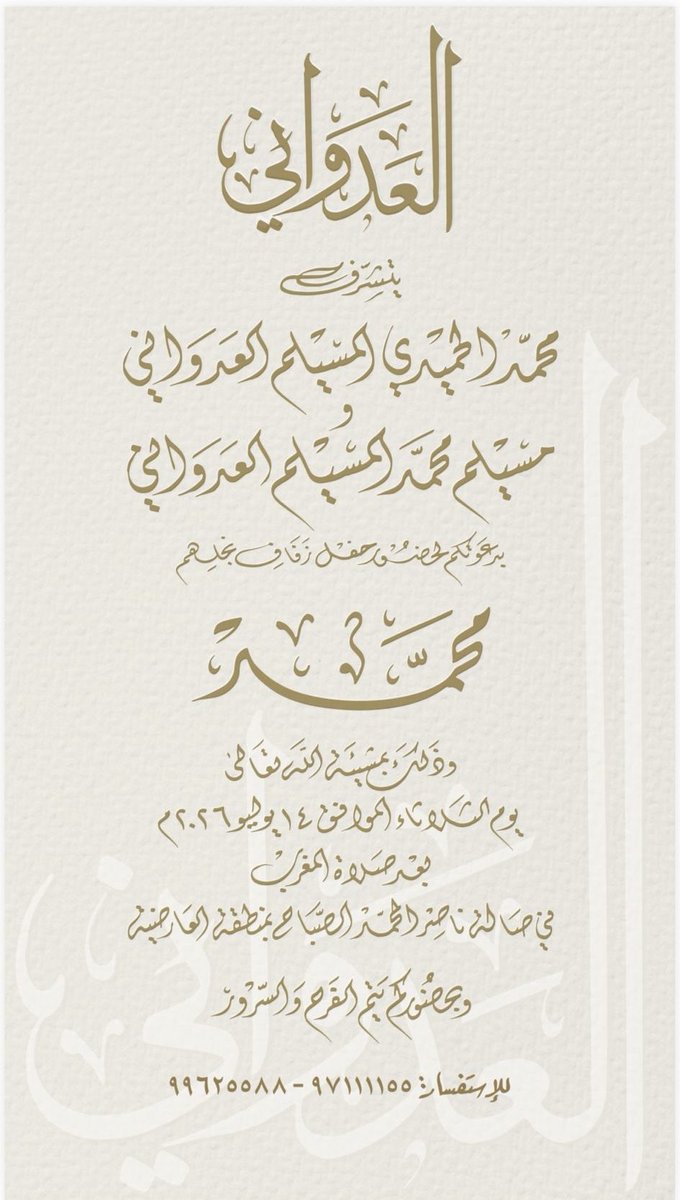 العدواني
يتشرف
محمد الحميدي المسيلم العدواني
و
مسيلم محمد المسيلم العدواني
يدعونكم لحضور حفل زفاف نجلهم
محمد
وذلك بمشيئة الله تعالى
يوم الثلاثاء الموافق ١٤ يوليو ٢٠٢٦م
بعد صلاة المغرب
في صالة ناصر المحمد الصباح بمنطقة العارضية
وبحضوركم يتم الفرح والسرور
للإستفسار: ٩٧١١١١٥٥ - ٩٩٦٢٥٥٨٨